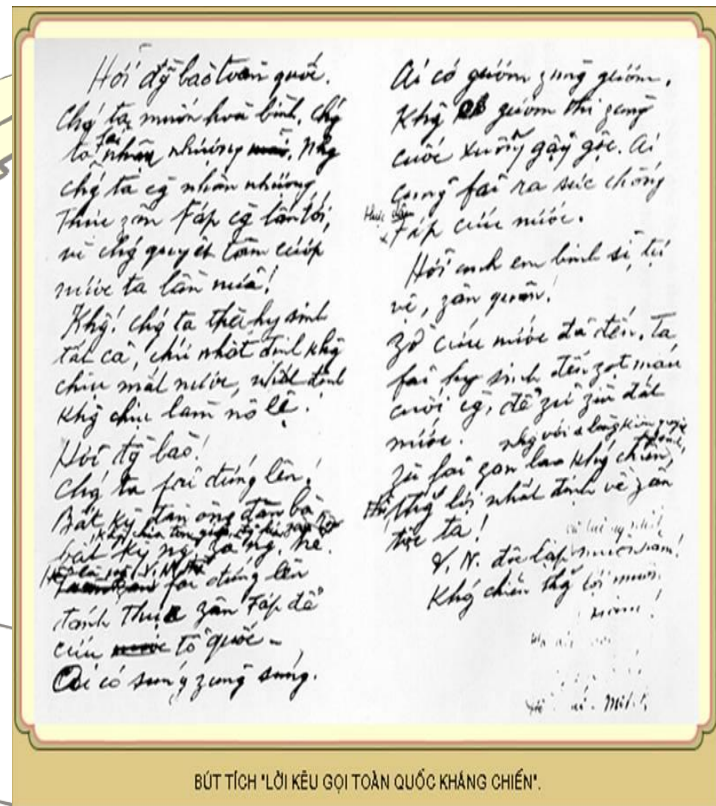 Hỡi đg̀ bào toàn quốc.
Chǵ ta muốn hoà bình, chǵ
ta fải nhân nhượng. Nhg
chǵ ta cg̀ nhân nhượng,
Thực zân Fáp cg̀ lấn tới,
vì chǵ quyết tâm cướp
nước ta lần nữa!
Khĝ! chǵ ta thà hy sinh
tất cả, chứ nhất định khĝ
chịu mất nước, nhất định
khĝ chịu làm nô lệ.
Hỡi đg̀ bào!
Chǵ ta fải đứng lên!
Bất kỳ đàn ông đàn bà
bất kỳ ng̀ già ng̀ trẻ.
fải đứng lên
đánh Thực zân Fáp để
cứu tổ quốc -
Ai có súng zùng súng.
Ai có gươm zùng gươm,
Khĝ có gươm thì zùng
cuốc xuổng gậy gộc. Ai
cũng fải ra sức chống
Thực zân
Fáp cứu nước.
Hỡi anh em binh sĩ, tự
vệ, zân quân!
Zờ cứu nước đã đến. Ta
fải hy sinh đến zọt máu
cuối cg̀, để zữ zìn đất
nước.
Zù fải gian lao khǵ chiến,
nhg với 1 lòng kiên quyết
thì thǵ lợi nhất định về zân
tộc ta!
V.N. độc lập muôn năm!
Khǵ chiến thǵ lợi muôn
năm!
BÚT TÍCH "LỜI KÊU GỌI TOÀN QUỐC KHÁNG CHIẾN".